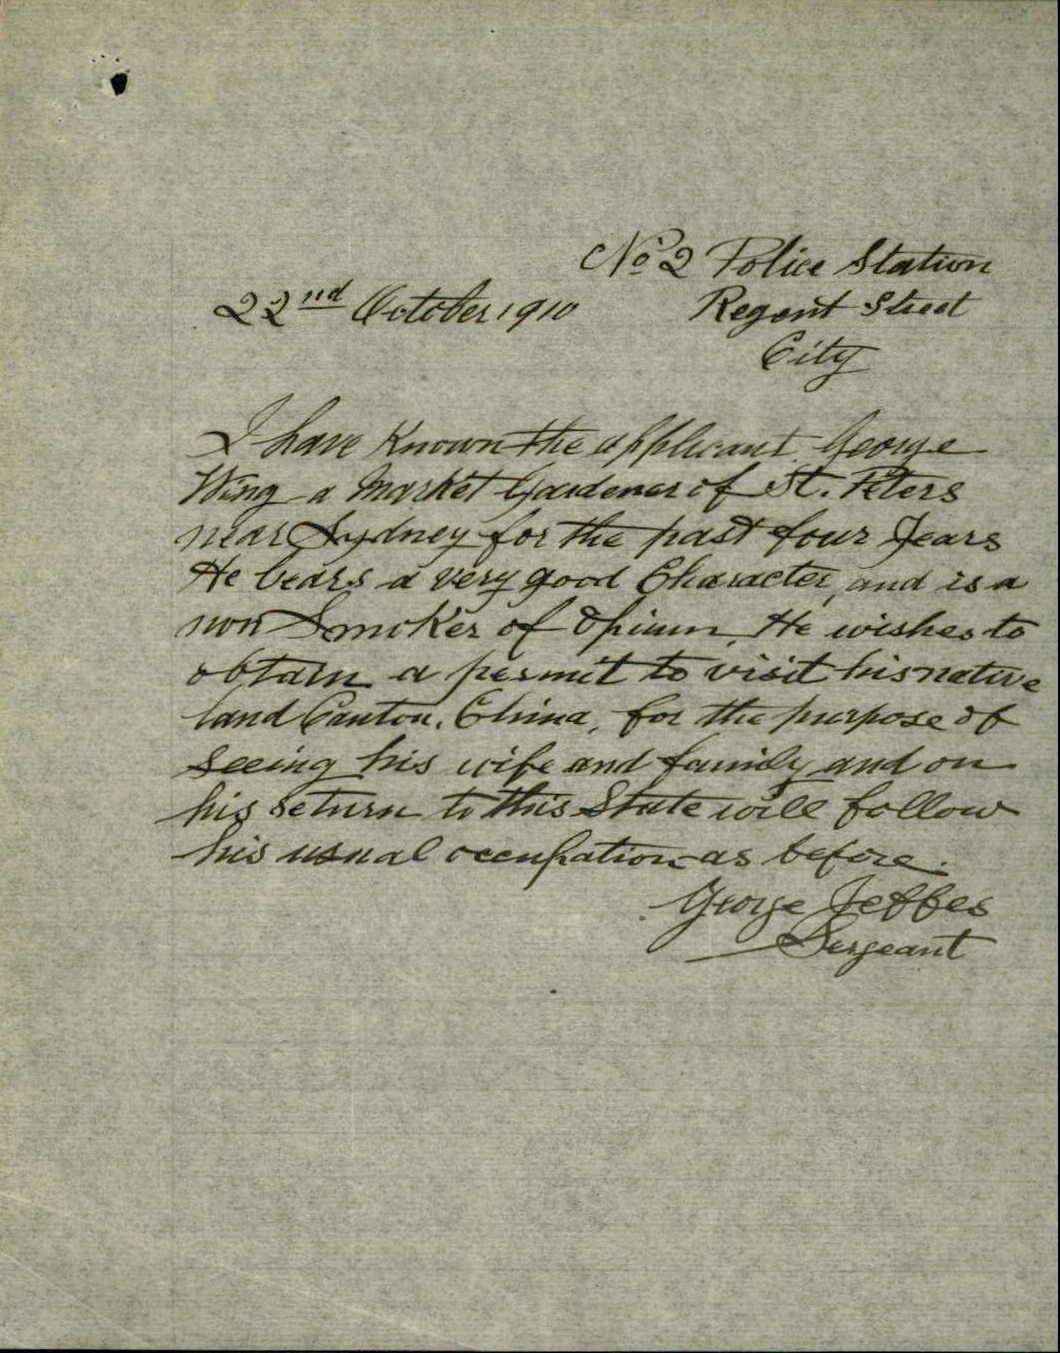 No 2 Police Station
22nd October 1910 Regent Street
City
I have Known the applicant George
Wing a Market Gardener of St. Peters
near Sydney for the past four Years
He bears a very good Character, and is a
non Smoker of Opium. He wishes to
obtain a permit to visit his native
land Canton, China, for the purpose of
seeing his wife and family and on
his return to this State will follow
his usual occupation as before.
George Jeffes
Sergeant